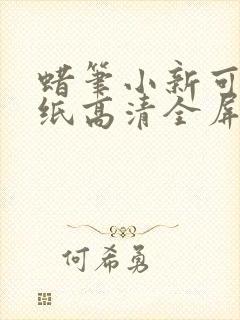 蜡筆小新可
纸高清全屏
何希勇